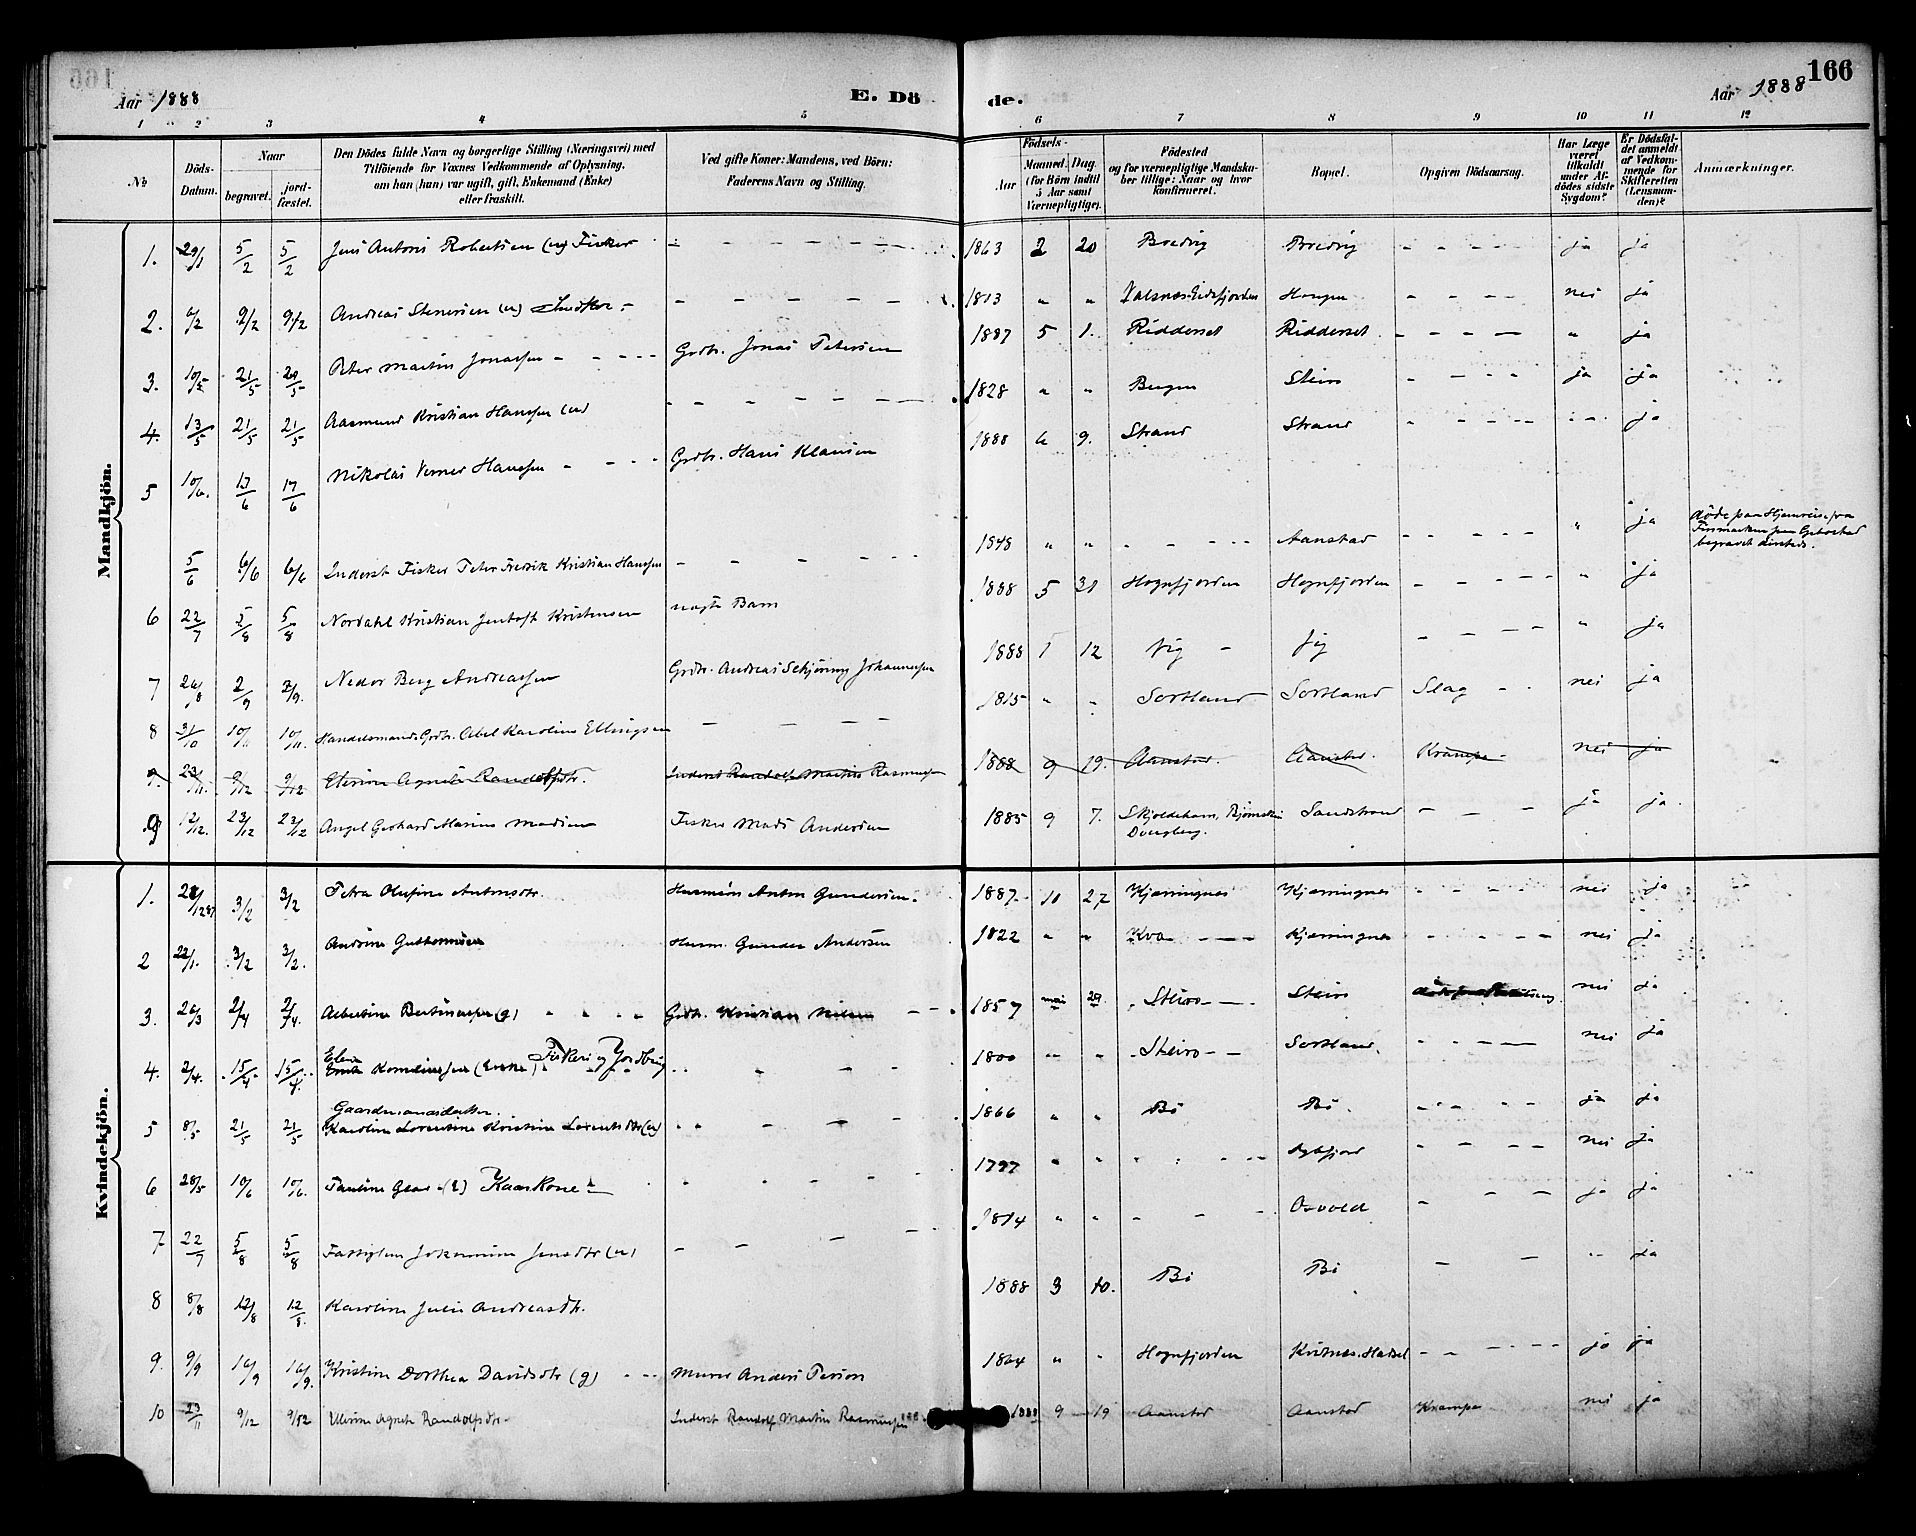 166
Aar 1888
E. Dö
de.
Aar 1888
1 2 3 4 5 6 7 8 9 10 11 12
№
Döds-Datum.
Naar
begravet.
jord-fæstet.
Den Dödes fulde Navn og borgerlige Stilling (Næringsvei) med
Tilföiende for Voxnes Vedkommende af Oplysning,
om han (hun) var ugift, gift, Enkemand (Enke)
eller fraskilt.
Ved gifte Koner: Mandens, ved Börn:
Faderens Navn og Stilling.
Födsels-
Aar
Maaned. Dag.
(for Börn indtil
5 Aar samt
Værnepligtige).
Födested
og for værnepligtige Mandska-
ber tillige: Naar og hvor
konfirmeret.
Bopæl.
Opgiven Dödsaarsag.
Har Læge
været
tilkaldt
under Af-
dödes sidste
Sygdom?
Er Dödsfal-
det anmeldt
af Vedkom-
mende for
Skifteretten
(Lensman-
den)?
Anmærkninger.
Mandkjön.
1. 29/1 5/2 5/2 Jens Antoni Robertsen (u) Fisker 1863 2 20 Bredvig Bredvig ja ja
2. 6/2 9/2 9/2 Andreas Stenersen (u) 1813 " " Valsnes Eidsfjorden Haugen nei ja
3. 10/5 21/5 21/5 Peter Martin Jonassen Grdbr. Jonas Petersen 1887 5 1. Ridderset Ridderset " ja
4. 13/5 21/5 21/5 Aasmund Kristian Hanssen (u) 1828 " " Bergen Steiro ja ja
5 10/6. 17/6 17/6 Nikolai Verner Hanssen Grdbr. Hans Klausen 1888 6 9. Strand Strand ja
5/6 6/6 6/6 Inderst Fisker Peter Fredrik Kristian Hanssen 1848 " " Aanstad " ja döde paa Hjemreise fra
Finmarken paa Gibostad
begravet dersteds.
6 22/7 5/8 5/8 Nordahl Kristian Jentoft Kristensen uægte Barn 1888 5 31 Hognfjorden Hognfjorden " ja
7 26/8 2/9 2/9. Nedor Berg Andreassen Grdbr. Andreas Schjöning Johannessen 1888 1 12 Vig Vig " ja
8 31/10 10/11 10/11. Handelsmand, Grdbr. Abel Karolius Ellingsen 1815 " " Sortland Sortland Slag nei ja
9. 23/11. 9/12 9/12 Elerine Agnete Randolfsdtr. Inderst Randolf Martin Rasmussen 1888 9 19. Aanstad Aanstad. Krampe nei ja
9 12/12. 23/12 23/12 Angel Gerhard Marius Madsen Fisker Mads Andersen 1885 9 7. Skjoldehavn, Bjørnskin
Dverberg. Sandstrand ja ja
Kvindekjön.
1. 28/12 87 3/2 3/2 Petra Olufine Antonsdtr. Husmand Anton Gundersen. 1887 10 27 Kjærringnes Kjærringnes nei ja
2 23/1. 3/2 3/2. Andrine Guttormsen Husm. Gunder Andersen 1822 " " Kva Kjærringnes nei ja
3. 26/3 2/4 2/4. Albertine Bertinessen (g) Grdbr. Kristian Nilsen 1857 mai 29. Steiro Steiro nei ja
4. 2/4. 15/4 15/4. Elen Korneliussen (Enke) Fiskeri og Jordbrug 1800 " " Steiro Sortland. nei ja
5 8/5 21/5 21/5 Gaardmandsdatter.
Karoline Lorentine Kristine Lorentsdtr (u) 1866 " " Bö Bö. ja ja
6 28/5 10/6 10/6. Pauline Kaarkone 1797 " " nei ja
7 22/7 5/8 5/8 Fattiglem Johannine Jensdtr (u) 1814 " " Osvold ja ja
8 8/8 12/8 12/8. Karoline Julie Andreasdtr. 1888 3 10. Bö Bö " ja
9. 9/9 16/9 16/9. Kristine Dorthea Davidsdtr (g) Murer Anders Person 1864 " " Hognfjorden Kvitnes. Hadsel ja ja
10 23/11 9/12 9/12 Ellerine Agnete Randolfsdtr. Inderst Randolf Martin Rasmussen 1888 9 19 Aanstad Aanstad Krampe nei ja